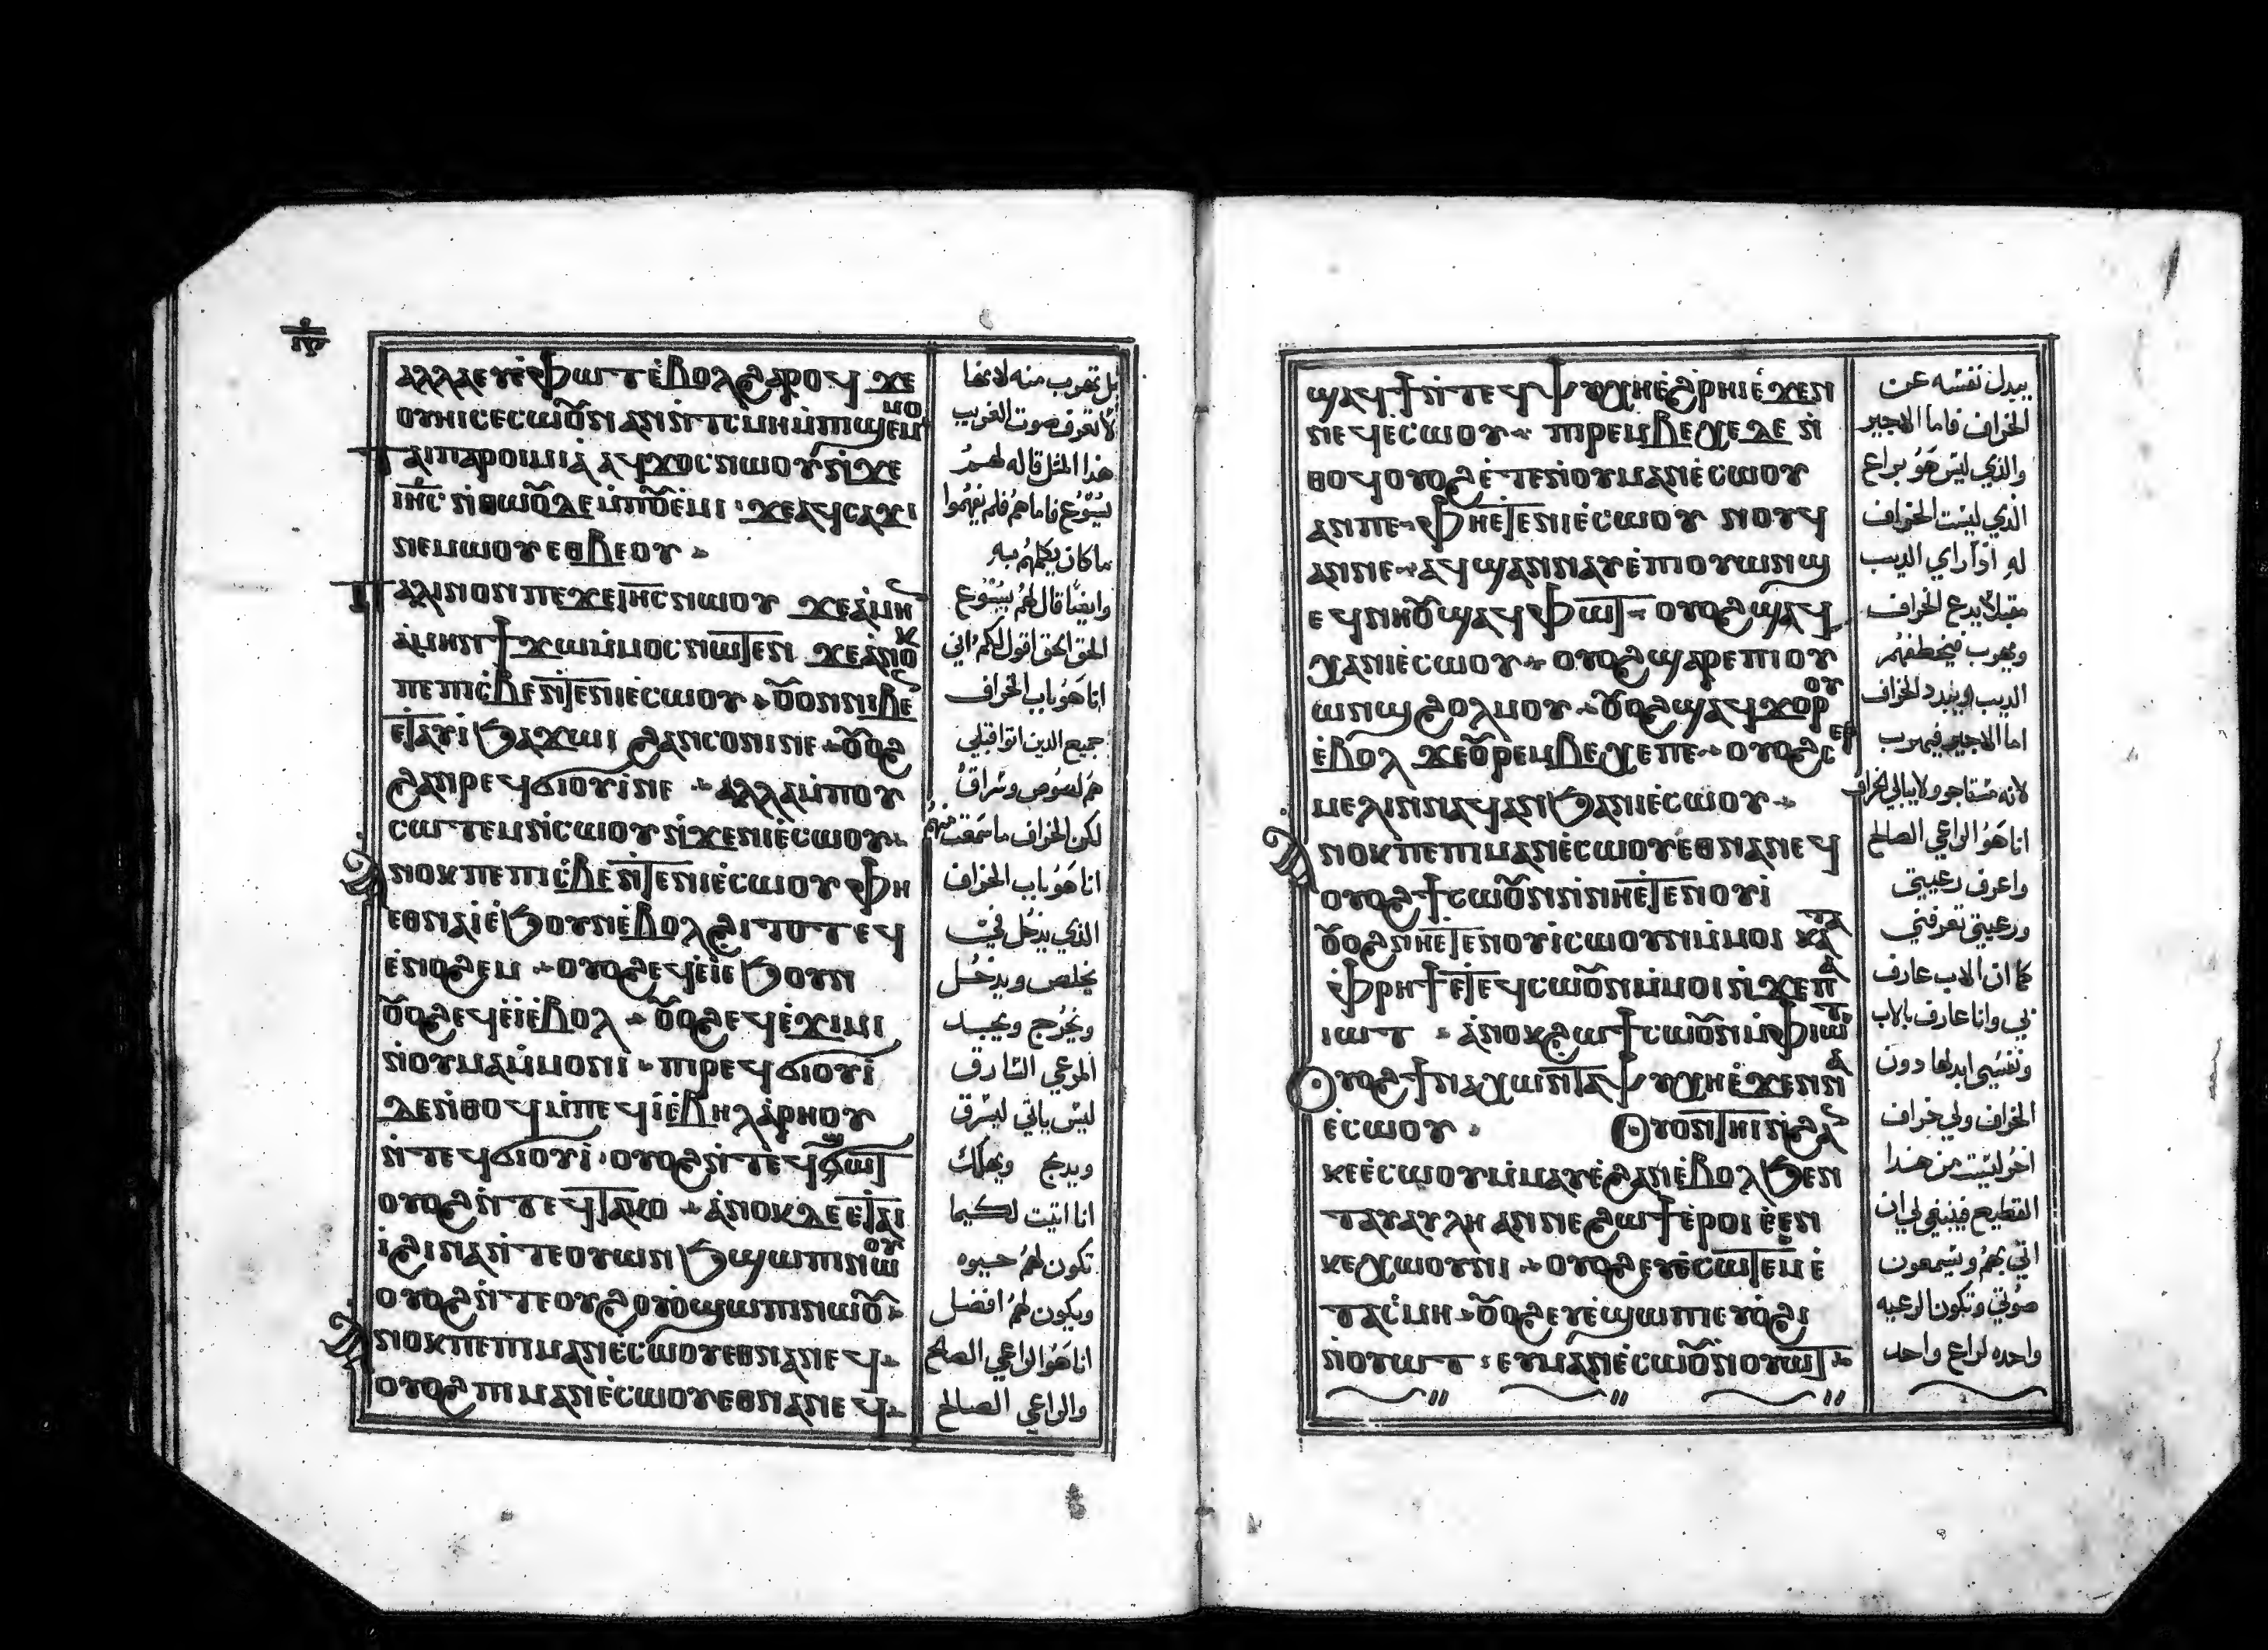 ⲁⲗⲗⲁ ⲉⲩⲉ̀ⲫⲱⲧ ⲉ̀ⲃⲟⲗ ϩⲁⲣⲟϥ ϫⲉ
ⲟⲩⲏⲓ ⲥⲉⲥⲱⲟⲩⲛ ⲁⲛ ⲛ̀ⲧ̀ⲥⲙⲏ ⲙ̀ⲡⲓϣⲉⲙⲙⲟ
ⲧⲁⲓⲡⲁⲣⲟⲓⲙⲓⲁ̀ ⲁϥϫⲟⲥ ⲛⲱⲟⲩ ⲛ̀ϫⲉ
ⲓⲏ̅ⲥ̅ ⲛ̀ⲑⲱⲟⲩ ⲇⲉ ⲙ̀ⲡⲟⲩⲉ̀ⲙⲓ ϫⲉ ⲁϥⲥⲁϫⲓ
ⲛⲉⲙⲱⲟⲩ ⲉⲑⲃⲉ ⲟⲩ
ⲡⲁⲗⲓⲛ ⲟⲛ ⲡⲉϫⲉ ⲓⲏ̅ⲥ̅ ⲛⲱⲟⲩ ϫⲉ ⲁ̀ⲙⲏⲛ
ⲁ̀ⲙⲏⲛ ϯϫⲱ ⲙ̀ⲙⲟⲥ ⲛⲱⲧⲉⲛ ϫⲉ ⲁ̀ⲛⲟⲕ
ⲡⲉ ⲡⲓⲥ̀ⲃⲉ ⲛ̀ⲧⲉ ⲛⲓⲉ̀ⲥⲱⲟⲩ ⲟⲩⲟⲛ ⲛⲓⲃⲉⲛ
ⲉ̀ⲧⲁⲩⲓ̀ ϧⲁϫⲱⲓ ϩⲁⲛⲥⲟⲛⲓ ⲛⲉ ⲟⲩⲟϩ
ϩⲁⲛⲣⲉϥϭⲓⲟⲩⲓ̀ ⲛⲉ ⲁⲗⲗⲁ ⲙ̀ⲡⲟⲩ
ⲥⲱⲧⲉⲙ ⲛ̀ⲥⲱⲟⲩ ⲛ̀ϫⲉ ⲛⲓⲉ̀ⲥⲱⲟⲩ
ⲁⲛⲟⲕ ⲡⲉ ⲡⲓⲥ̀ⲃⲉ ⲛ̀ⲧⲉ ⲛⲓⲉ̀ⲥⲱⲟⲩ ⲫⲏ
ⲉⲑⲛⲁⲓ̀ ⲉ̀ϧⲟⲩⲛ ⲉ̀ⲃⲟⲗ ϩⲓⲧⲟⲧ ⲉϥ
ⲉ̀ⲛⲟϩⲉⲙ ⲟⲩⲟϩ ⲉϥⲉ̀ⲓ̀ ⲉϧⲟⲩⲛ
ⲟⲩⲟϩ ⲉϥⲉ̀ⲓ̀ ⲉ̀ⲃⲟⲗ ⲟⲩⲟϩ ⲉϥⲉ̀ϫⲓⲙⲓ
ⲛ̀ⲟⲩⲙⲁⲙ̀ⲙⲟⲛⲓ ⲡⲓⲣⲉϥϭⲓⲟⲩⲓ̀
ⲇⲉ ⲛ̀ⲑⲟϥ ⲙ̀ⲡⲉϥⲓ̀ ⲉ̀ⲃⲏⲗ ⲁ̀ⲣⲏⲟⲩ
ⲛ̀ⲧⲉϥϭⲓⲟⲩⲓ̀ ⲟⲩⲟϩ ⲛ̀ⲧⲉϥϣⲱⲧ
ⲟⲩⲟϩ ⲛ̀ⲧⲉϥⲧⲁⲕⲟ ⲁ̀ⲛⲟⲕ ⲇⲉ ⲉⲧⲁⲓ
ⲓ̀ ϩⲓⲛⲁ ⲛ̀ⲧⲉ ⲟⲩⲱⲛϧ ϣⲱⲡⲓ ⲛⲱⲟⲩ
ⲟⲩⲟϩ ⲛ̀ⲧⲉ ⲟⲩϩⲟⲩⲟ̀ ϣⲱⲡⲓ ⲛⲱⲟⲩ
ⲁⲛⲟⲕ ⲡⲉ ⲡⲓⲙⲁⲛⲉ̀ⲥⲱⲟⲩ ⲉⲑⲛⲁⲛⲉϥ
ⲟⲩⲟϩ ⲡⲓⲙⲁⲛⲉ̀ⲥⲱⲟⲩ ⲉⲑⲛⲁⲛⲉϥ
بل تهرب منه لانها
لا تعرف صوت الغريب
هذا المثل قاله لهمُ
يسُوع فاما هم فلم يفهموا
ما كان يكلمهُم به
وايضًا قال لهُم يسُوع
الحق الحق اقول لكم اني
انا هَو باب الخراف
جميع الدين اتوا قبلي
هم لصُوص وسُراق
لكن الخراف ما سمعت منهم
انا هَو باب الخراف
الذي يدخُل فيّ
يخلص ويدخُل
ويخُرج ويجد
المرعي السَارق
ليس ياتي ليسرق
ويدبح ويهلك
انا اتيت لكيما
تكون لهُم حيوه
ويكون لهُم افضل
انا هَو الراعي الصالح
والراعي الصالح
ϣⲁϥϯ ⲛ̀ⲧⲉϥⲯⲩⲭⲏ ⲉ̀ϩⲣⲏⲓ ⲉ̀ϫⲉⲛ
ⲛⲉϥⲉⲥⲱⲟⲩ ⲡⲓⲣⲉⲙⲃⲉⲭⲉ ⲇⲉ ⲛ̀
ⲑⲟϥ ⲟⲩⲟϩ ⲉ̀ⲧⲉ ⲛ̀ⲟⲩⲙⲁⲛⲉ̀ⲥⲱⲟⲩ
ⲁⲛ ⲡⲉ ⲫⲏⲉⲧⲉ ⲛⲓⲉ̀ⲥⲱⲟⲩ ⲛⲟⲩϥ
ⲁⲛ ⲛⲉ ⲁϥϣⲁⲛⲛⲁⲩ ⲉ̀ⲡⲓⲟⲩⲱⲛϣ
ⲉϥⲛⲏⲟⲩ ϣⲁϥⲫⲱⲧ ⲟⲩⲟϩ ϣⲁϥ
ⲭⲁ ⲛⲓⲉ̀ⲥⲱⲟⲩ ⲟⲩⲟϩ ϣⲁⲣⲉ ⲡⲓⲟⲩ
ⲱⲛϣ ϩⲟⲗⲙⲟⲩ ⲟⲩⲟϩ ϣⲁϥϫⲟⲣⲟⲩ
ⲉ̀ⲃⲟⲗ ϫⲉ ⲟⲩⲣⲉⲙⲃⲉⲭⲉ ⲡⲉ ⲟⲩⲟϩ ⲥⲉⲣ
ⲙⲉⲗⲓⲛ ⲛⲁϥ ⲁⲛ ϧⲁ ⲛⲓⲉ̀ⲥⲱⲟⲩ
ⲁⲛⲟⲕ ⲡⲉ ⲡⲓⲙⲁⲛⲉ̀ⲥⲱⲟⲩ ⲉⲑⲛⲁⲛⲉϥ
ⲟⲩⲟϩ ϯⲥⲱⲟⲩⲛ ⲛ̀ⲛⲏⲉ̀ⲧⲉ ⲛⲟⲩⲓ̀
ⲟⲩⲟϩ ⲛⲏⲉ̀ⲧⲉ ⲛⲟⲩⲓ̀ ⲥⲱⲟⲩⲛ ⲙ̀ⲙⲟⲓ ⲕⲁⲧⲁ
ⲫⲣⲏϯ ⲉⲧⲉϥⲥⲱⲟⲩⲛ ⲙ̀ⲙⲟⲓ ⲛ̀ϫⲉ ⲡⲁ
ⲓⲱⲧ ⲁ̀ⲛⲟⲕ ϩⲱ ϯⲥⲱⲟⲩⲛ ⲙ̀ⲫⲓⲱⲧ
ⲟⲩⲟϩ ϯⲛⲁⲭⲱ ⲛ̀ⲧⲁⲯⲩⲭⲏ ⲉ̀ϫⲉⲛ ⲛⲁ
ⲉ̀ⲥⲱⲟⲩ ⲟⲩⲟⲛⲧⲏⲓ ⲛ̀ϩⲁⲛ
ⲕⲉⲉ̀ⲥⲱⲟⲩ ⲙ̀ⲙⲁⲩ ⲉ̀ϩⲁⲛⲉ̀ⲃⲟⲗ ϧⲉⲛ
ⲧⲁⲓⲁⲩⲗⲏ ⲁⲛ ⲛⲉ ϩⲱϯ ⲉ̀ⲣⲟⲓ ⲉ̀ⲉⲛ
ⲕⲉⲭⲱⲟⲩⲛⲓ ⲟⲩⲟϩ ⲉⲩⲉ̀ⲥⲱⲧⲉⲙ ⲉ̀
ⲧⲁⲥ̀ⲙⲏ ⲟⲩⲟϩ ⲉⲩⲉ̀ϣⲱⲡⲓ ⲉⲩⲟ̀ϩⲓ
ⲛ̀ⲟⲩⲱⲧ ⲉⲩⲙⲁⲛⲉ̀ⲥⲱⲟⲩ ⲛⲟⲩⲱⲧ
يبدل نفسَه عن
الخراف فاما الاجير
والذي ليس هَو براع
الذي ليست الخراف
له اذا راي الديب
مقبلا يدع الخراف
ويهرب فيخطفهُم
الديب ويبدد الخراف
اما الاجير فيهرب
لانه مستاجر ولا يبالي بالخراف
انا هَو الراعي الصالح
واعرف رعيتي
ورعيتي تعرفني
كما ان الاب عارف
بي وانا عارف بالاب
ونفسي ابدلها دون
الخراف ولي خراف
اخُر ليست من هَدا
القطيع فينبغي لي ان
اتي بهُم ويسمعون
صُوتي وتكون الرعيه
واحده لراع واحد